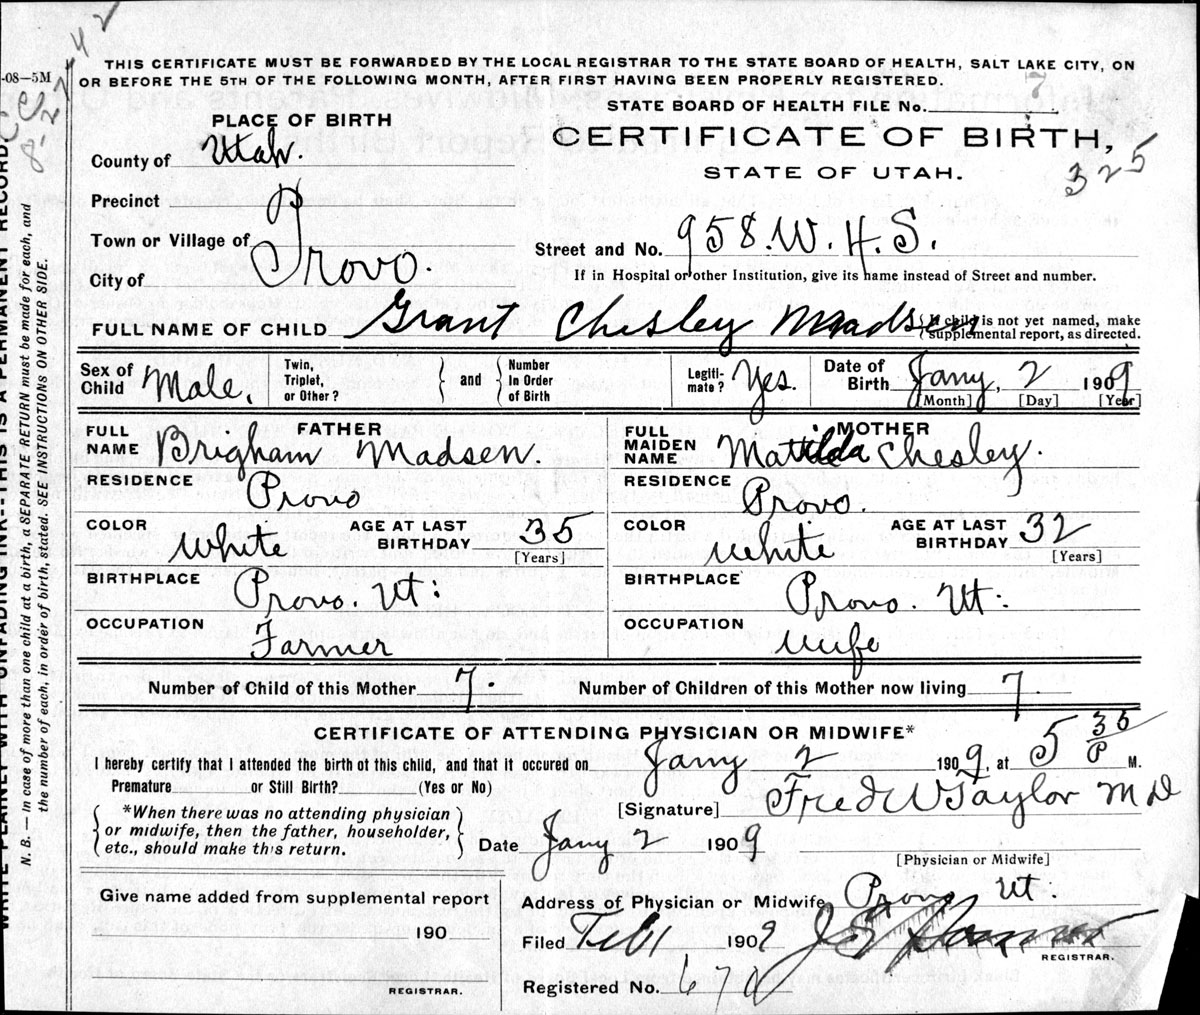 42
-08-5M
THIS CERTIFICATE MUST BE FORWARDED BY THE LOCAL REGISTRAR TO THE STATE BOARD OF HEALTH, SALT LAKE CITY, ON
OR BEFORE THE 5TH OF THE FOLLOWING MONTH, AFTER FIRST HAVING BEEN PROPERLY REGISTERED.
STATE BOARD OF HEALTH FILE No. 7
PLACE OF BIRTH
CERTIFICATE OF BIRTH,
325
STATE OF UTAH.
County of Utah.
Precinct
Town or Village of
City of Provo.
Street and No. 958. W. H. S.
If in Hospital or other Institution, give its name instead of Street and number.
FULL NAME OF CHILD Grant Chesley Madsen
(If child is not yet named, make
supplemental report, as directed.
Sex of Child Male.
Twin, Triplet, or Other?
and
Number In Order of Birth
Legiti-mate? Yes.
Date of Birth Jany, 2 1909
[Month] [Day] [Year]
FATHER
FULL NAME Brigham Madsen.
RESIDENCE Provo
COLOR White AGE AT LAST BIRTHDAY 35 [Years]
BIRTHPLACE Provo. Ut:
OCCUPATION Farmer
MOTHER
FULL MAIDEN NAME Matilda Chesley.
RESIDENCE Provo.
COLOR White AGE AT LAST BIRTHDAY 32 [Years]
BIRTHPLACE Provo. Ut:
OCCUPATION Wife
Number of Child of this Mother 7. Number of Children of this Mother now living 7.
CERTIFICATE OF ATTENDING PHYSICIAN OR MIDWIFE*
I hereby certify that I attended the birth of this child, and that it occured on Jany 2 1909, at 5 35 P M.
Premature or Still Birth? (Yes or No)
[Signature] Fred W Taylor M D
*When there was no attending physician
or midwife, then the father, householder,
etc., should make this return.
Date Jany 2 1909
[Physician or Midwife]
Give name added from supplemental report
190
REGISTRAR.
Address of Physician or Midwife Provo Ut.
Filed Feb 1 1909
REGISTRAR.
Registered No. 670
WRITE PLAINLY WITH UNFADING INK--THIS IS A PERMANENT RECORD
N. B. — In case of more than one child at a birth, a SEPARATE RETURN must be made for each, and
the number of each, in order of birth, stated. SEE INSTRUCTIONS ON OTHER SIDE.